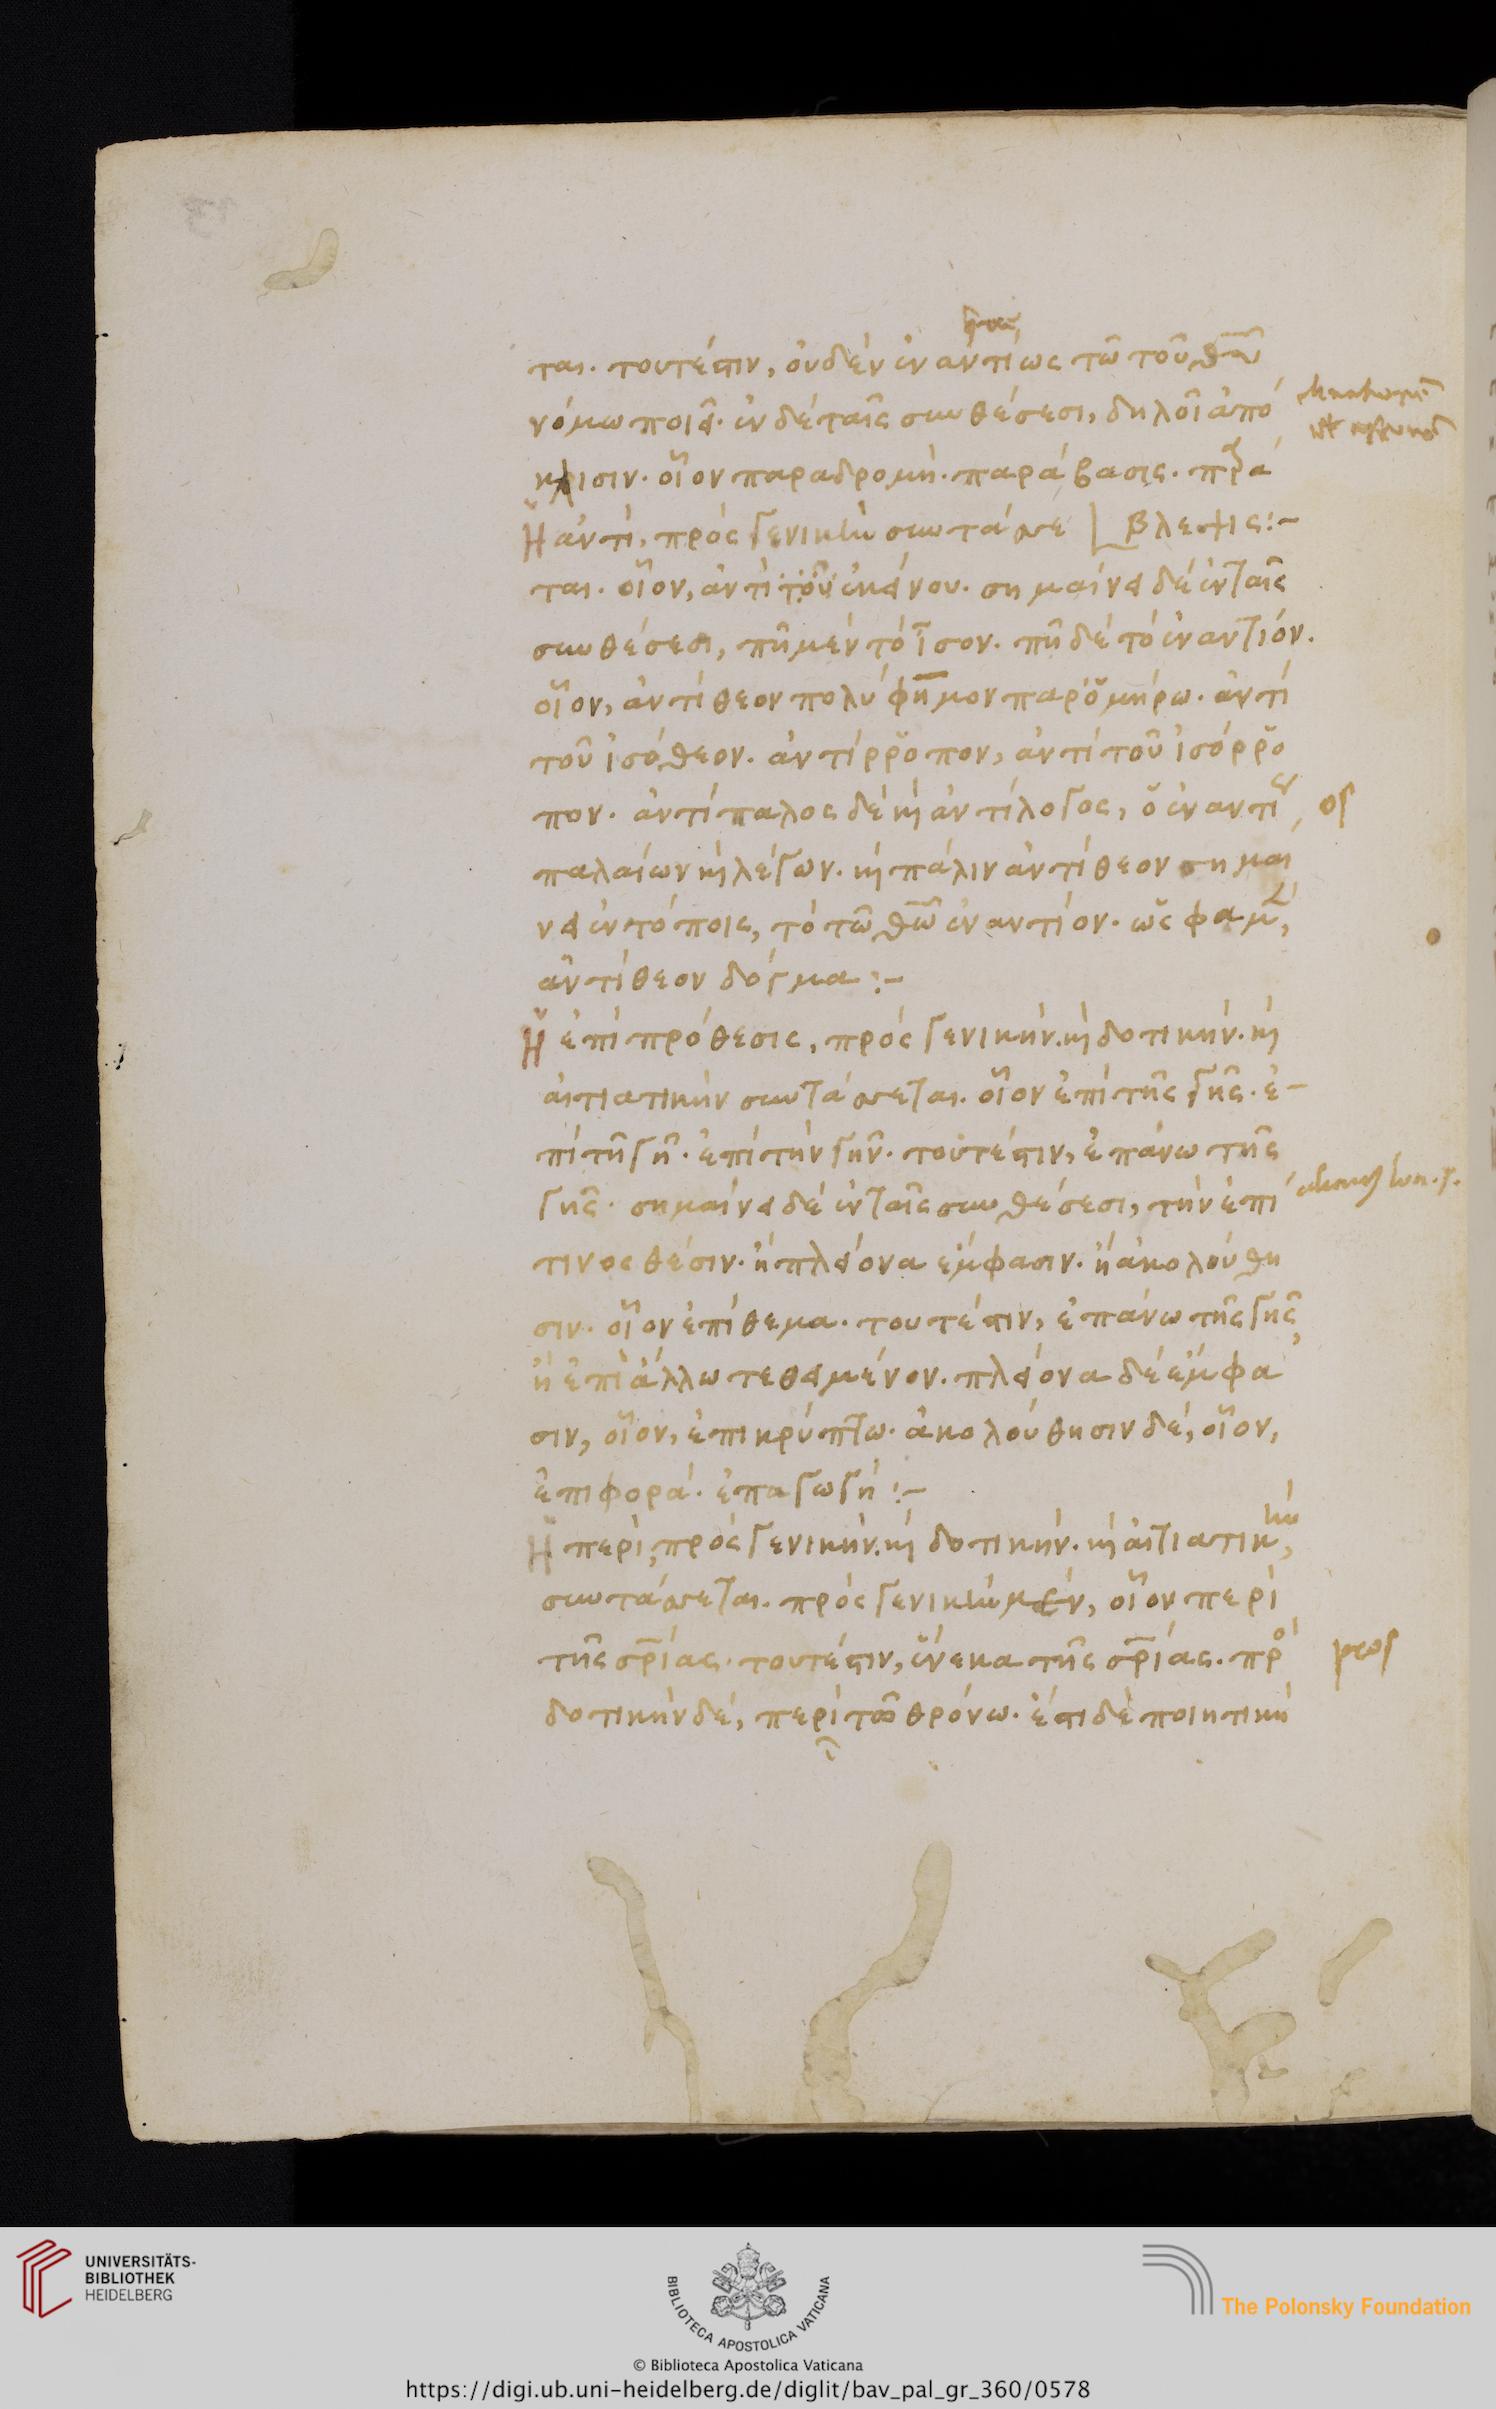 ται. τουτέστιν, οὐδὲν ἐναντίως τῶ τοῦ θυ
νόμω ποιεῖ. ἐν δὲ ταῖς συνθέσεσι, δηλοῖ ἀπό
κλισιν. οἷον παραδρομὴ. παράβασις. παρά
Ἡ ἀντὶ, πρὸς γενικὴν συντάσσε βλεψις:-
ται. οἷον, ἀντὶ τοῦ ἐκείνου. σημαίνει δὲ ἐν ταῖς
συνθέσεσι, πῆ μὲν τὸ ἴσον. πῆ δὲ τὸ ἐναντίον.
οἷον, ἀντίθεον πολύφημον παρ' ὁμήρω. ἀντὶ
τοῦ ἰσόθεον. ἀντίρροπον, ἀντὶ τοῦ ἰσόρρο
πον. ἀντίπαλος δὲ καὶ ἀντίλογος, ὁ ἐναντί
ος
παλαίων καὶ λέγων. καὶ πάλιν ἀντίθεον σημαί
νει ἐν τόποις, τὸ τῶ θῶ ἐναντίον. ὥς φαμεν,
ἀντίθεον δόγμα:-
Ἡ ἐπὶ πρόθεσις, πρὸς γενικὴν. καὶ δοτικὴν. καὶ
αἰτιατικὴν συντάσσεται. οἷον ἐπὶ τῆς γῆς. ἐ-
πὶ τῆ γῆ. ἐπὶ τὴν γῆν. τουτέστιν, ἐπάνω τῆς
γῆς. σημαίνει δὲ ἐν ταῖς συνθέσεσι, τὴν ἐπί
τινος θέσιν. ἢ πλείονα ἔμφασιν. ἢ ἀκολούθη
σιν. οἷον ἐπίθεμα. τουτέστιν, ἐπάνω τῆς γῆς,
ἢ ἐπὶ ἄλλω τεθειμένον. πλείονα δὲ ἔμφα
σιν, οἷον, ἐπικρύπτω. ἀκολούθησιν δὲ, οἷον,
ἐπιφορά. ἐπαγωγή:-
Ἡ περὶ, πρὸς γενικὴν. καὶ δοτικὴν. καὶ αἰτιατικὴν,
συντάσσεται. πρὸς γενικὴν μὲν, οἷον περὶ
τῆς σρίας. τουτέστιν, ἕνεκα τῆς σρίας. πρὸ
ρος
δοτικὴν δὲ, περὶ τῶ θρόνω. ἔστι δὲ ποιητικὴ
UNIVERSITÄTS-
BIBLIOTHEK
HEIDELBERG
BIBLIOTECA APOSTOLICA VATICANA
The Polonsky Foundation
© Biblioteca Apostolica Vaticana
https://digi.ub.uni-heidelberg.de/diglit/bav_pal_gr_360/0578